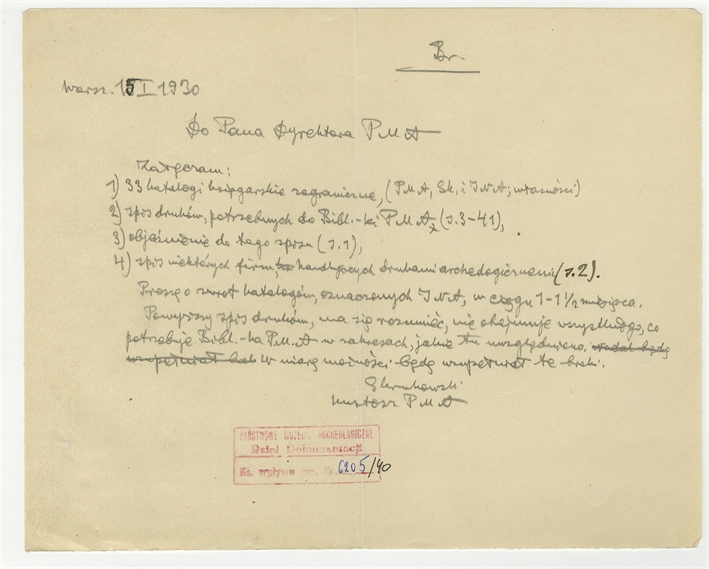 Br.
Warsz. 15 I 1930
Do Pana Dyrektora P M A
Załączam:
1) 33 katalogi księgarskie zagraniczne, (P.M.A, Sk. i J.N.A; własności)
2) spis druków, potrzebnych do Bibl.-ki P.M.A, (s. 3-41),
3) objaśnienie do tego spisu (s. 1),
4) spis niektórych firm, handlujących drukami archeologicznemi (s. 2).
Proszę o zwrot katalogów, oznaczonych J.N.A, w ciągu 1-1½ miesiąca.
Powyższy spis druków, ma się rozumieć, nie obejmuje wszystkiego, co
potrzebuje Bibl.-ka P.M.A w zakresach, jakie tu uwzględniono. nadal będę
uzupełniał W miarę możności będę uzupełniał te braki.
kustosz P M A
PAŃSTWOWE MUZEUM ARCHEOLOGICZNE
Dział Dokumentacji
Ks. wpływu 6205/40